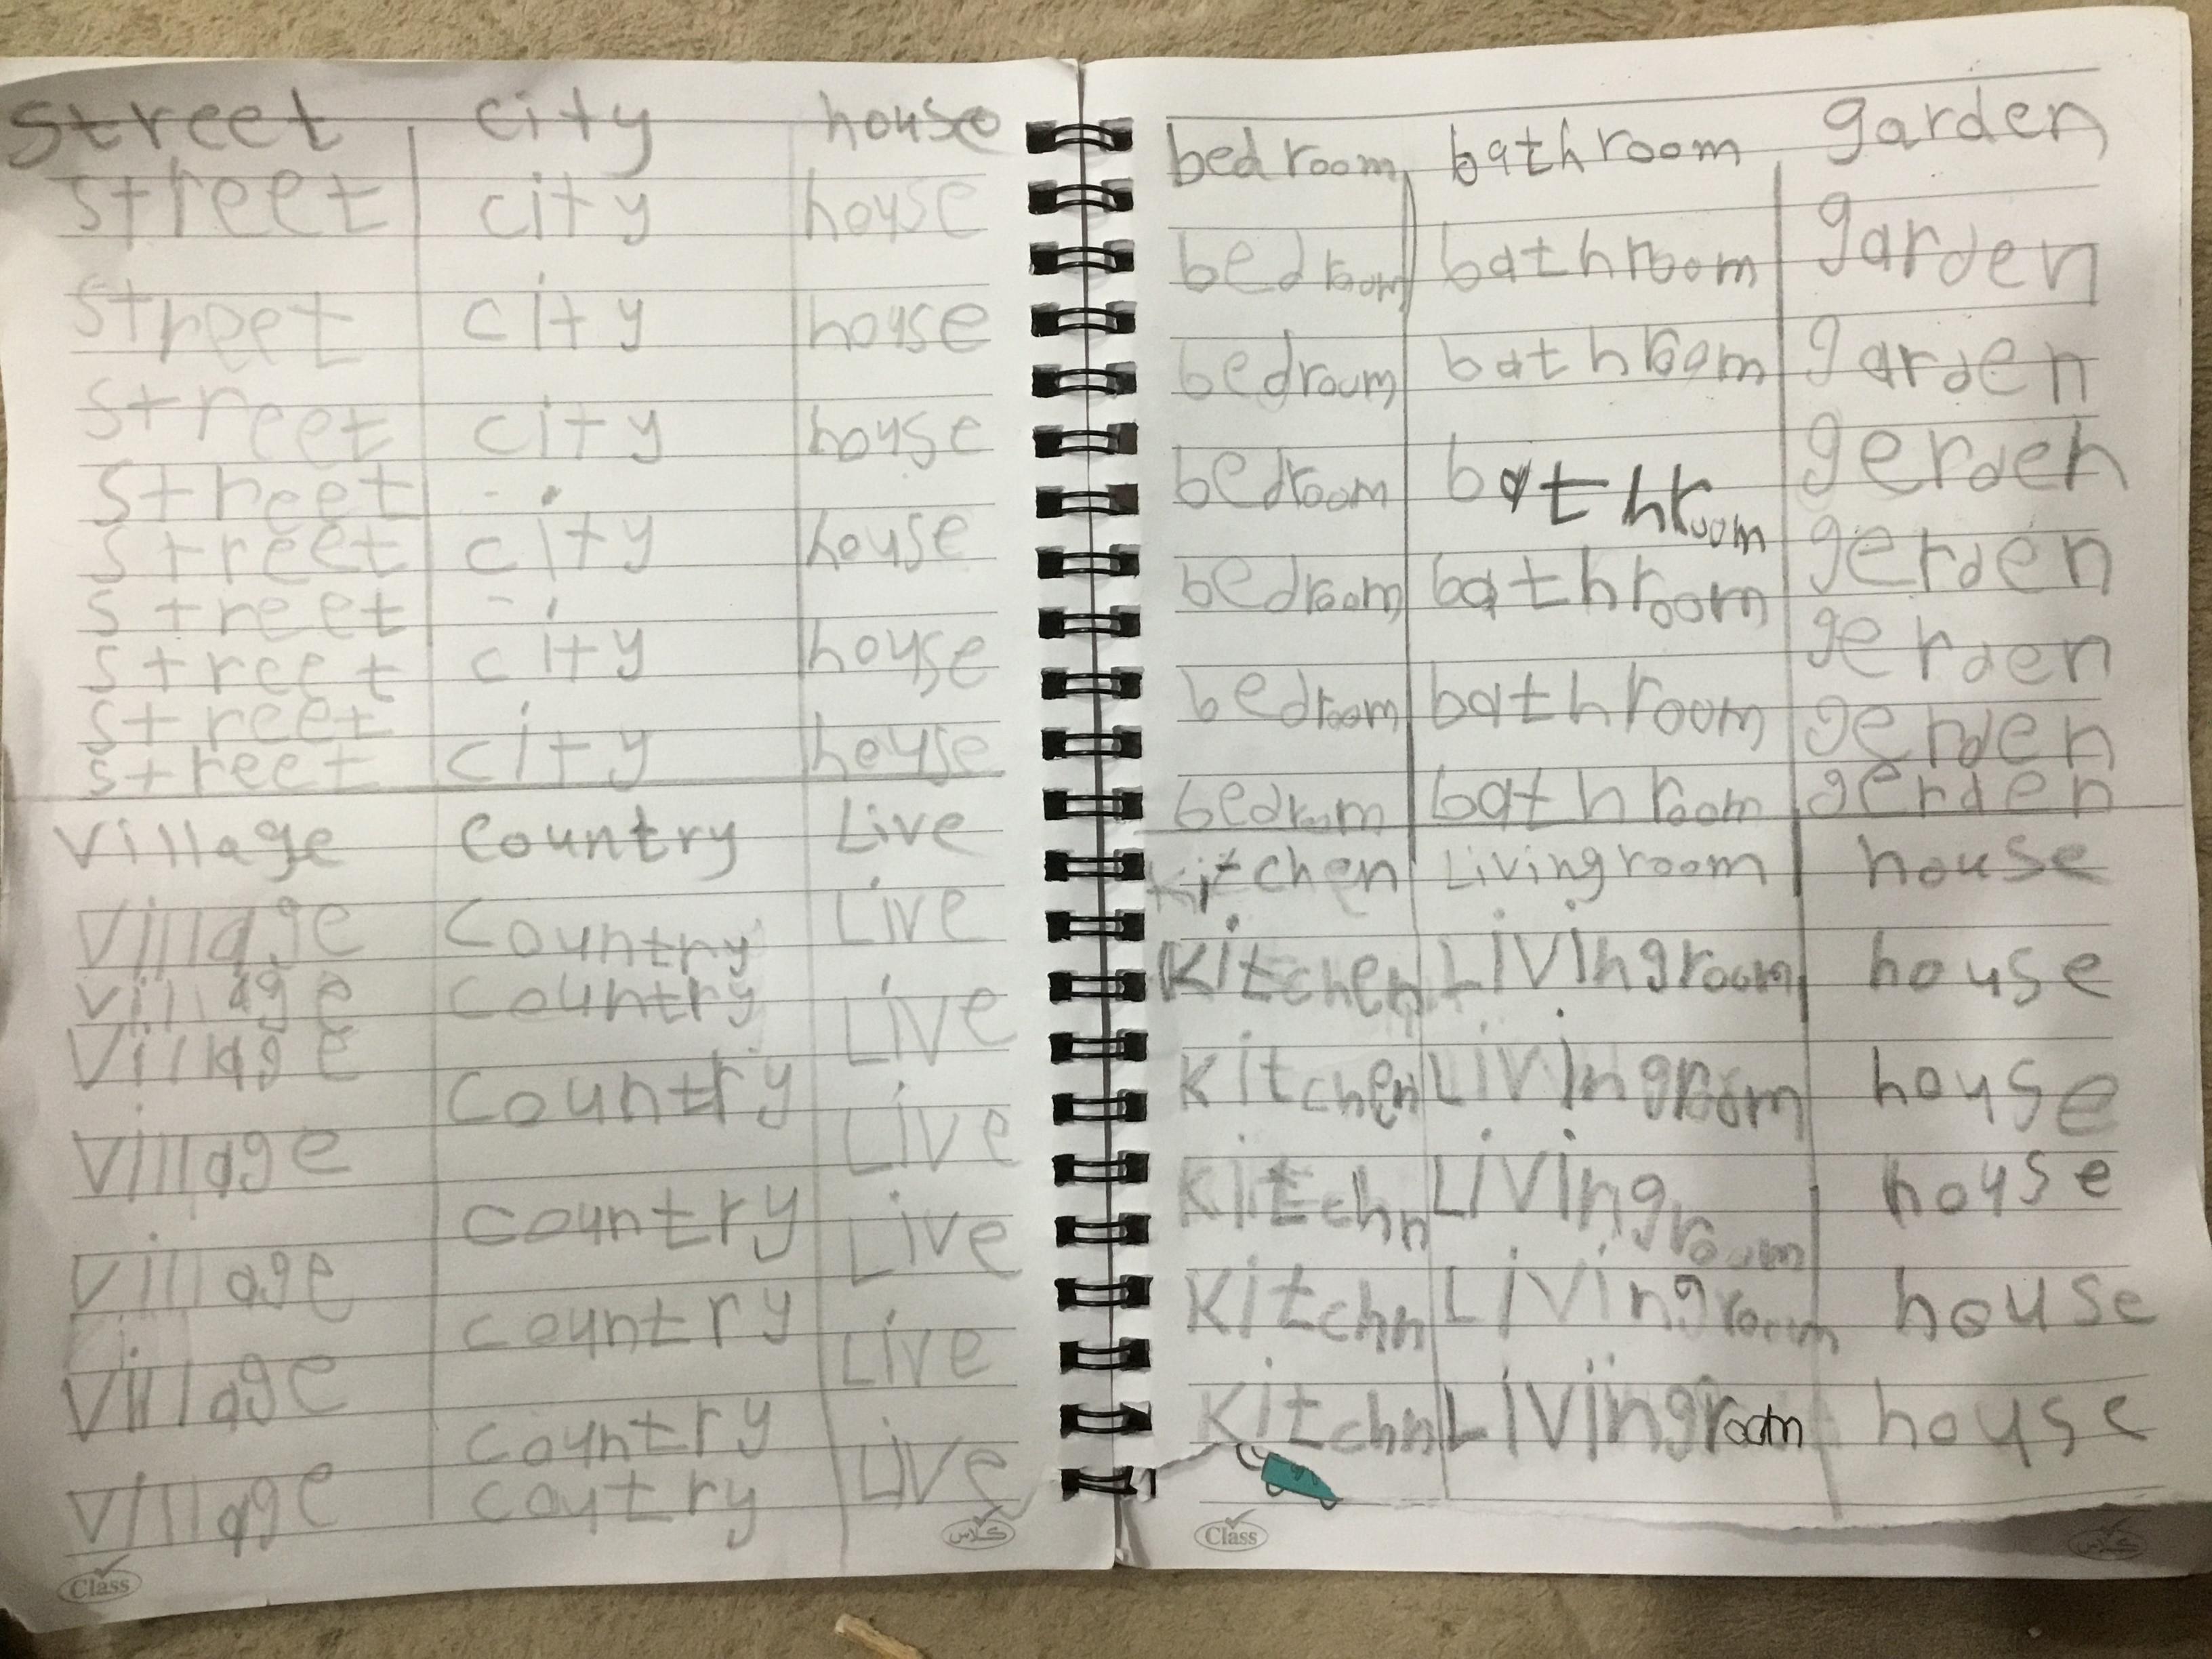 street city house
street city house
street city house
street city house
street
street city house
street
street city house
street
street city house
Village Country Live
Village Country Live
Village Country
Village Live
Country
Village Live
Country
Village Live
country
Village Live
country
Village country Live
Class كلاس
bedroom bathroom garden
bedroom bathroom garden
bedroom bathroom garden
bedroom bathroom gerden
bedroom bathroom gerden
gerden
bedroom bathroom gerden
bedroom bathroom gerden
Kitchen Livingroom house
Kitchen Livingroom house
Kitchen Livingroom house
Kitchn Livingroom house
Kitchn Livingroom house
Kitchn Livingroom house
Class كلاس